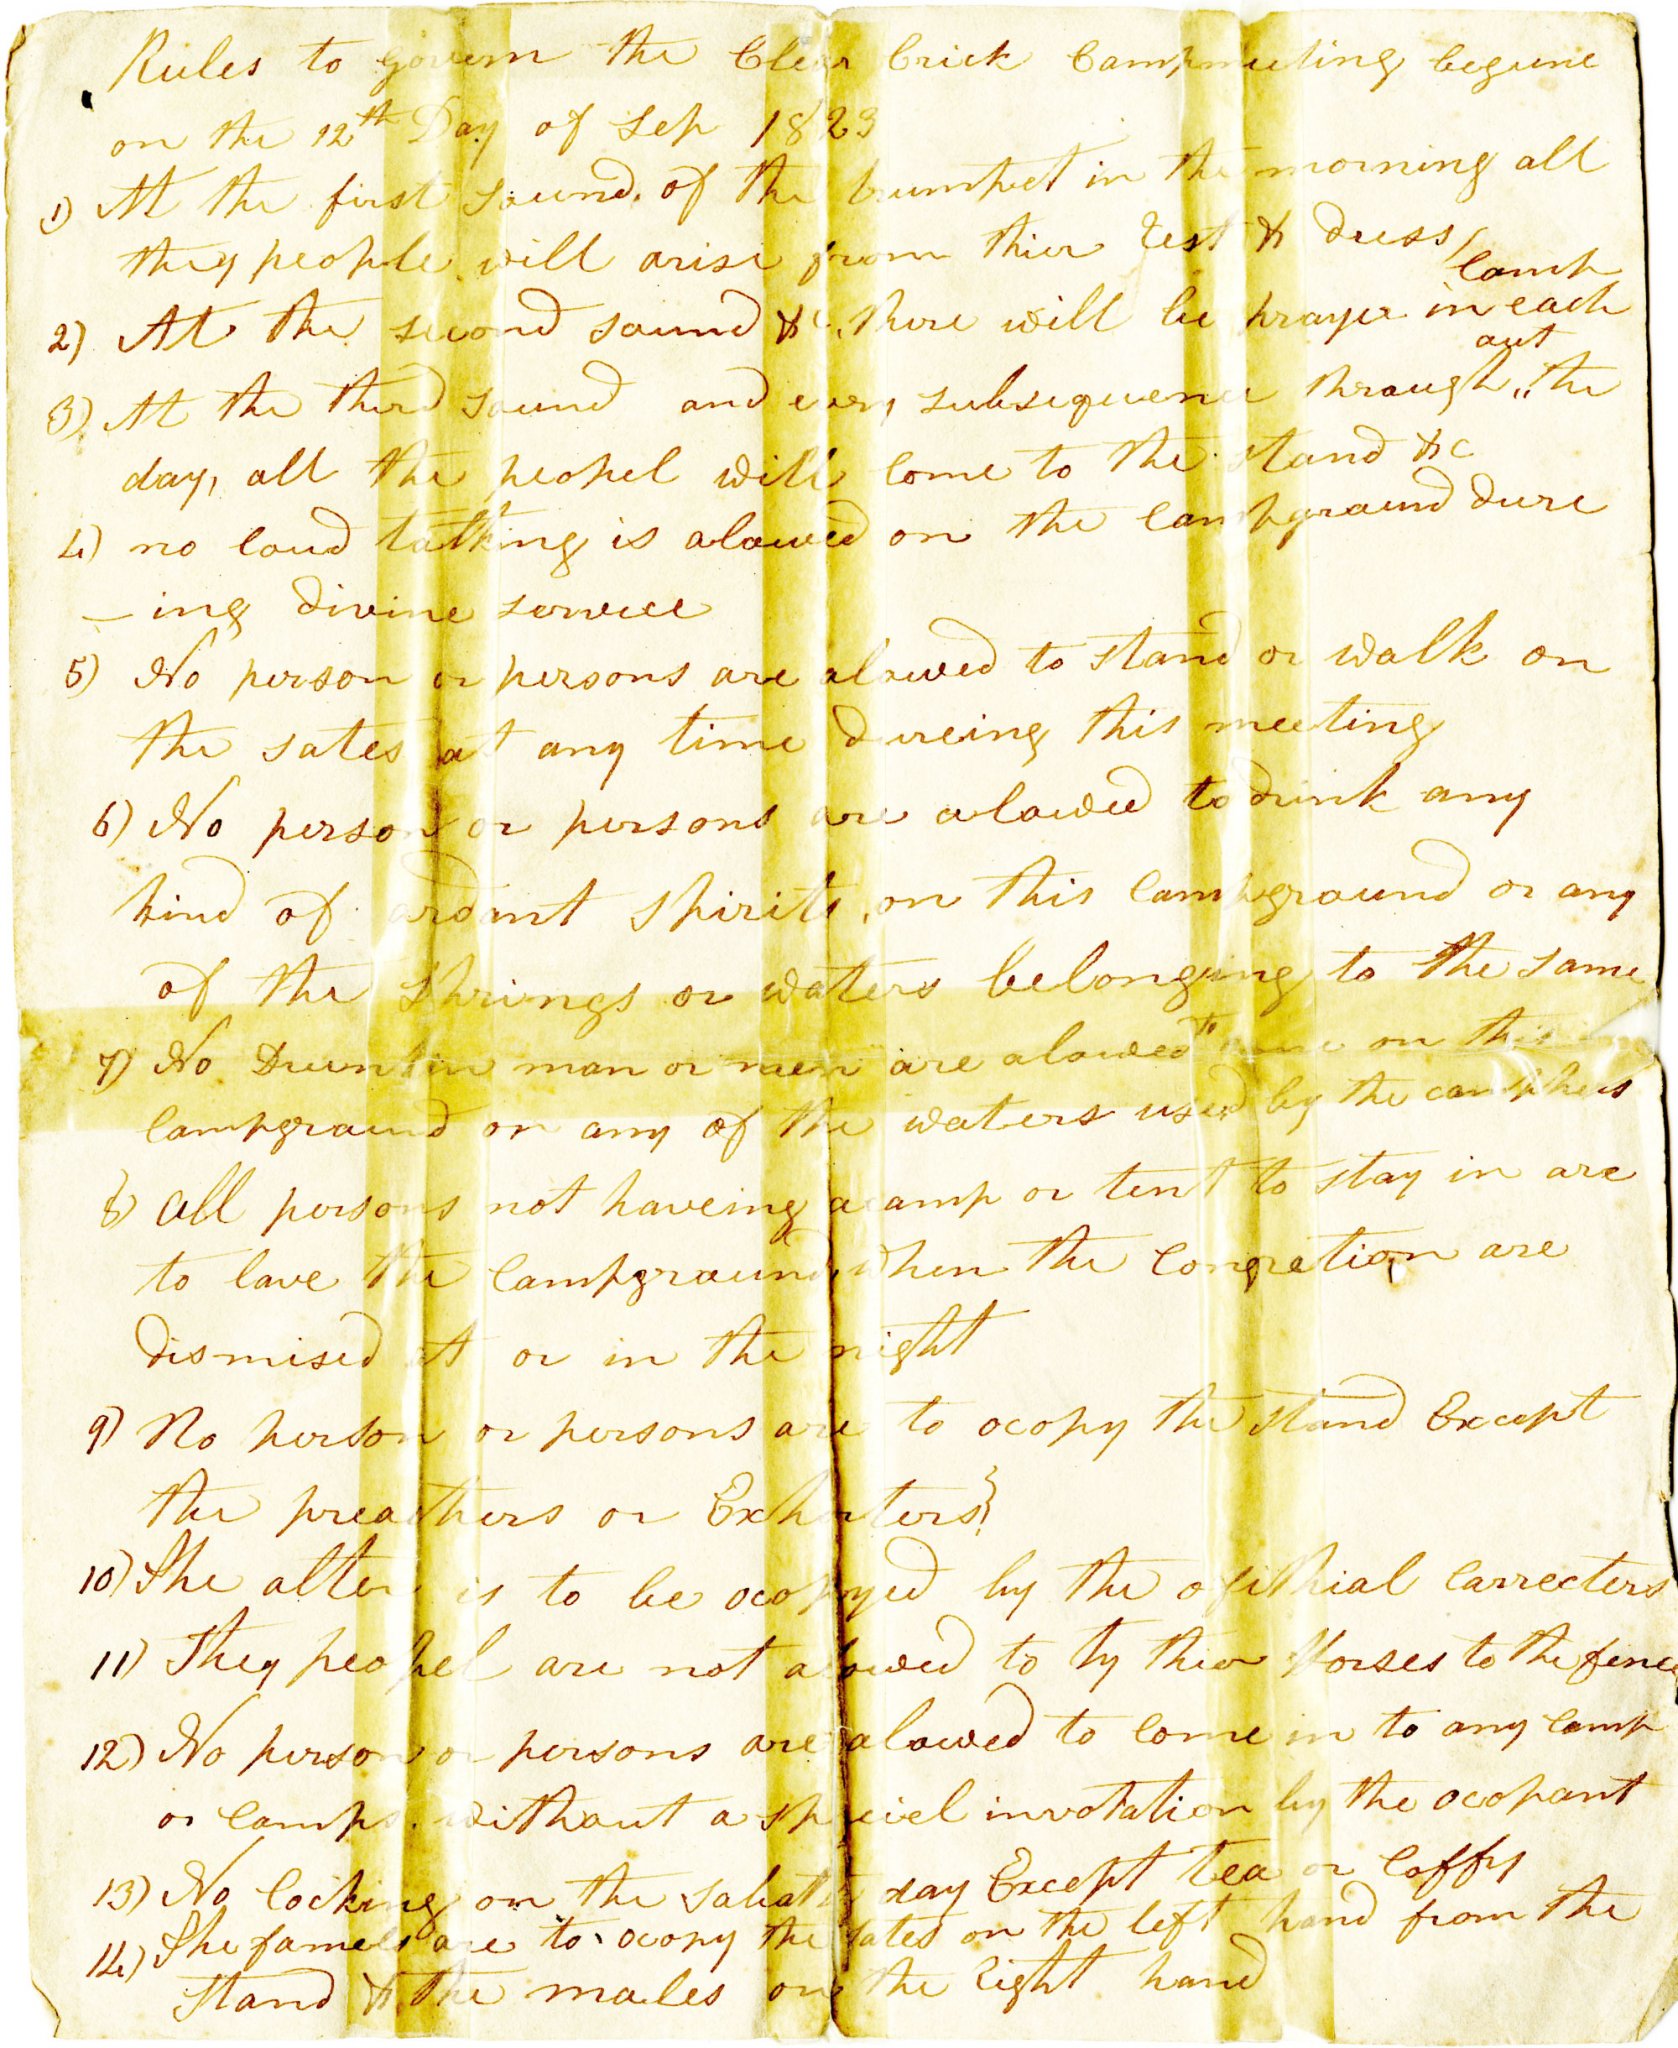 Rules to govern the Clear Crick Campmeeting begune
on the 12th Day of Sep 1823
1) At the first sound of the trumpet in the morning all
they people will arise from thier rest & dress
2) At the second sound &c. there will be prayer in each camp
3) At the third sound and every subsequence through out the
day, all the peopel will come to the stand &c
4) no loud talking is alowed on the campground dure
-ing divine service
5) No person or persons are alowed to stand or walk on
the sates at any time dureing this meeting
6) No person or persons are alowed to drink any
kind of ardant spirits on this campground or any
of the springs or waters belonging to the same
7) No Drunken man or men are alowed to come on this
campground or any of the waters used by the camphers
8) All persons not haveing a camp or tent to stay in are
to lave the campground when the congretion are
dismised at or in the night
9) No person or persons are to ocopy the stand Except
the preachers or Exhorters
10) The alter is to be ocopyed by the ofithial carrecters
11) They peopel are not alowed to ty thier Horses to the fence
12) No person or persons are alowed to come in to any camp
or camps without a speciel invotation by the ocopant
13) No cocking on the sabath day Except tea or coffy
14) The famels are to ocopy the sates on the left hand from the
stand & the males on the right hand